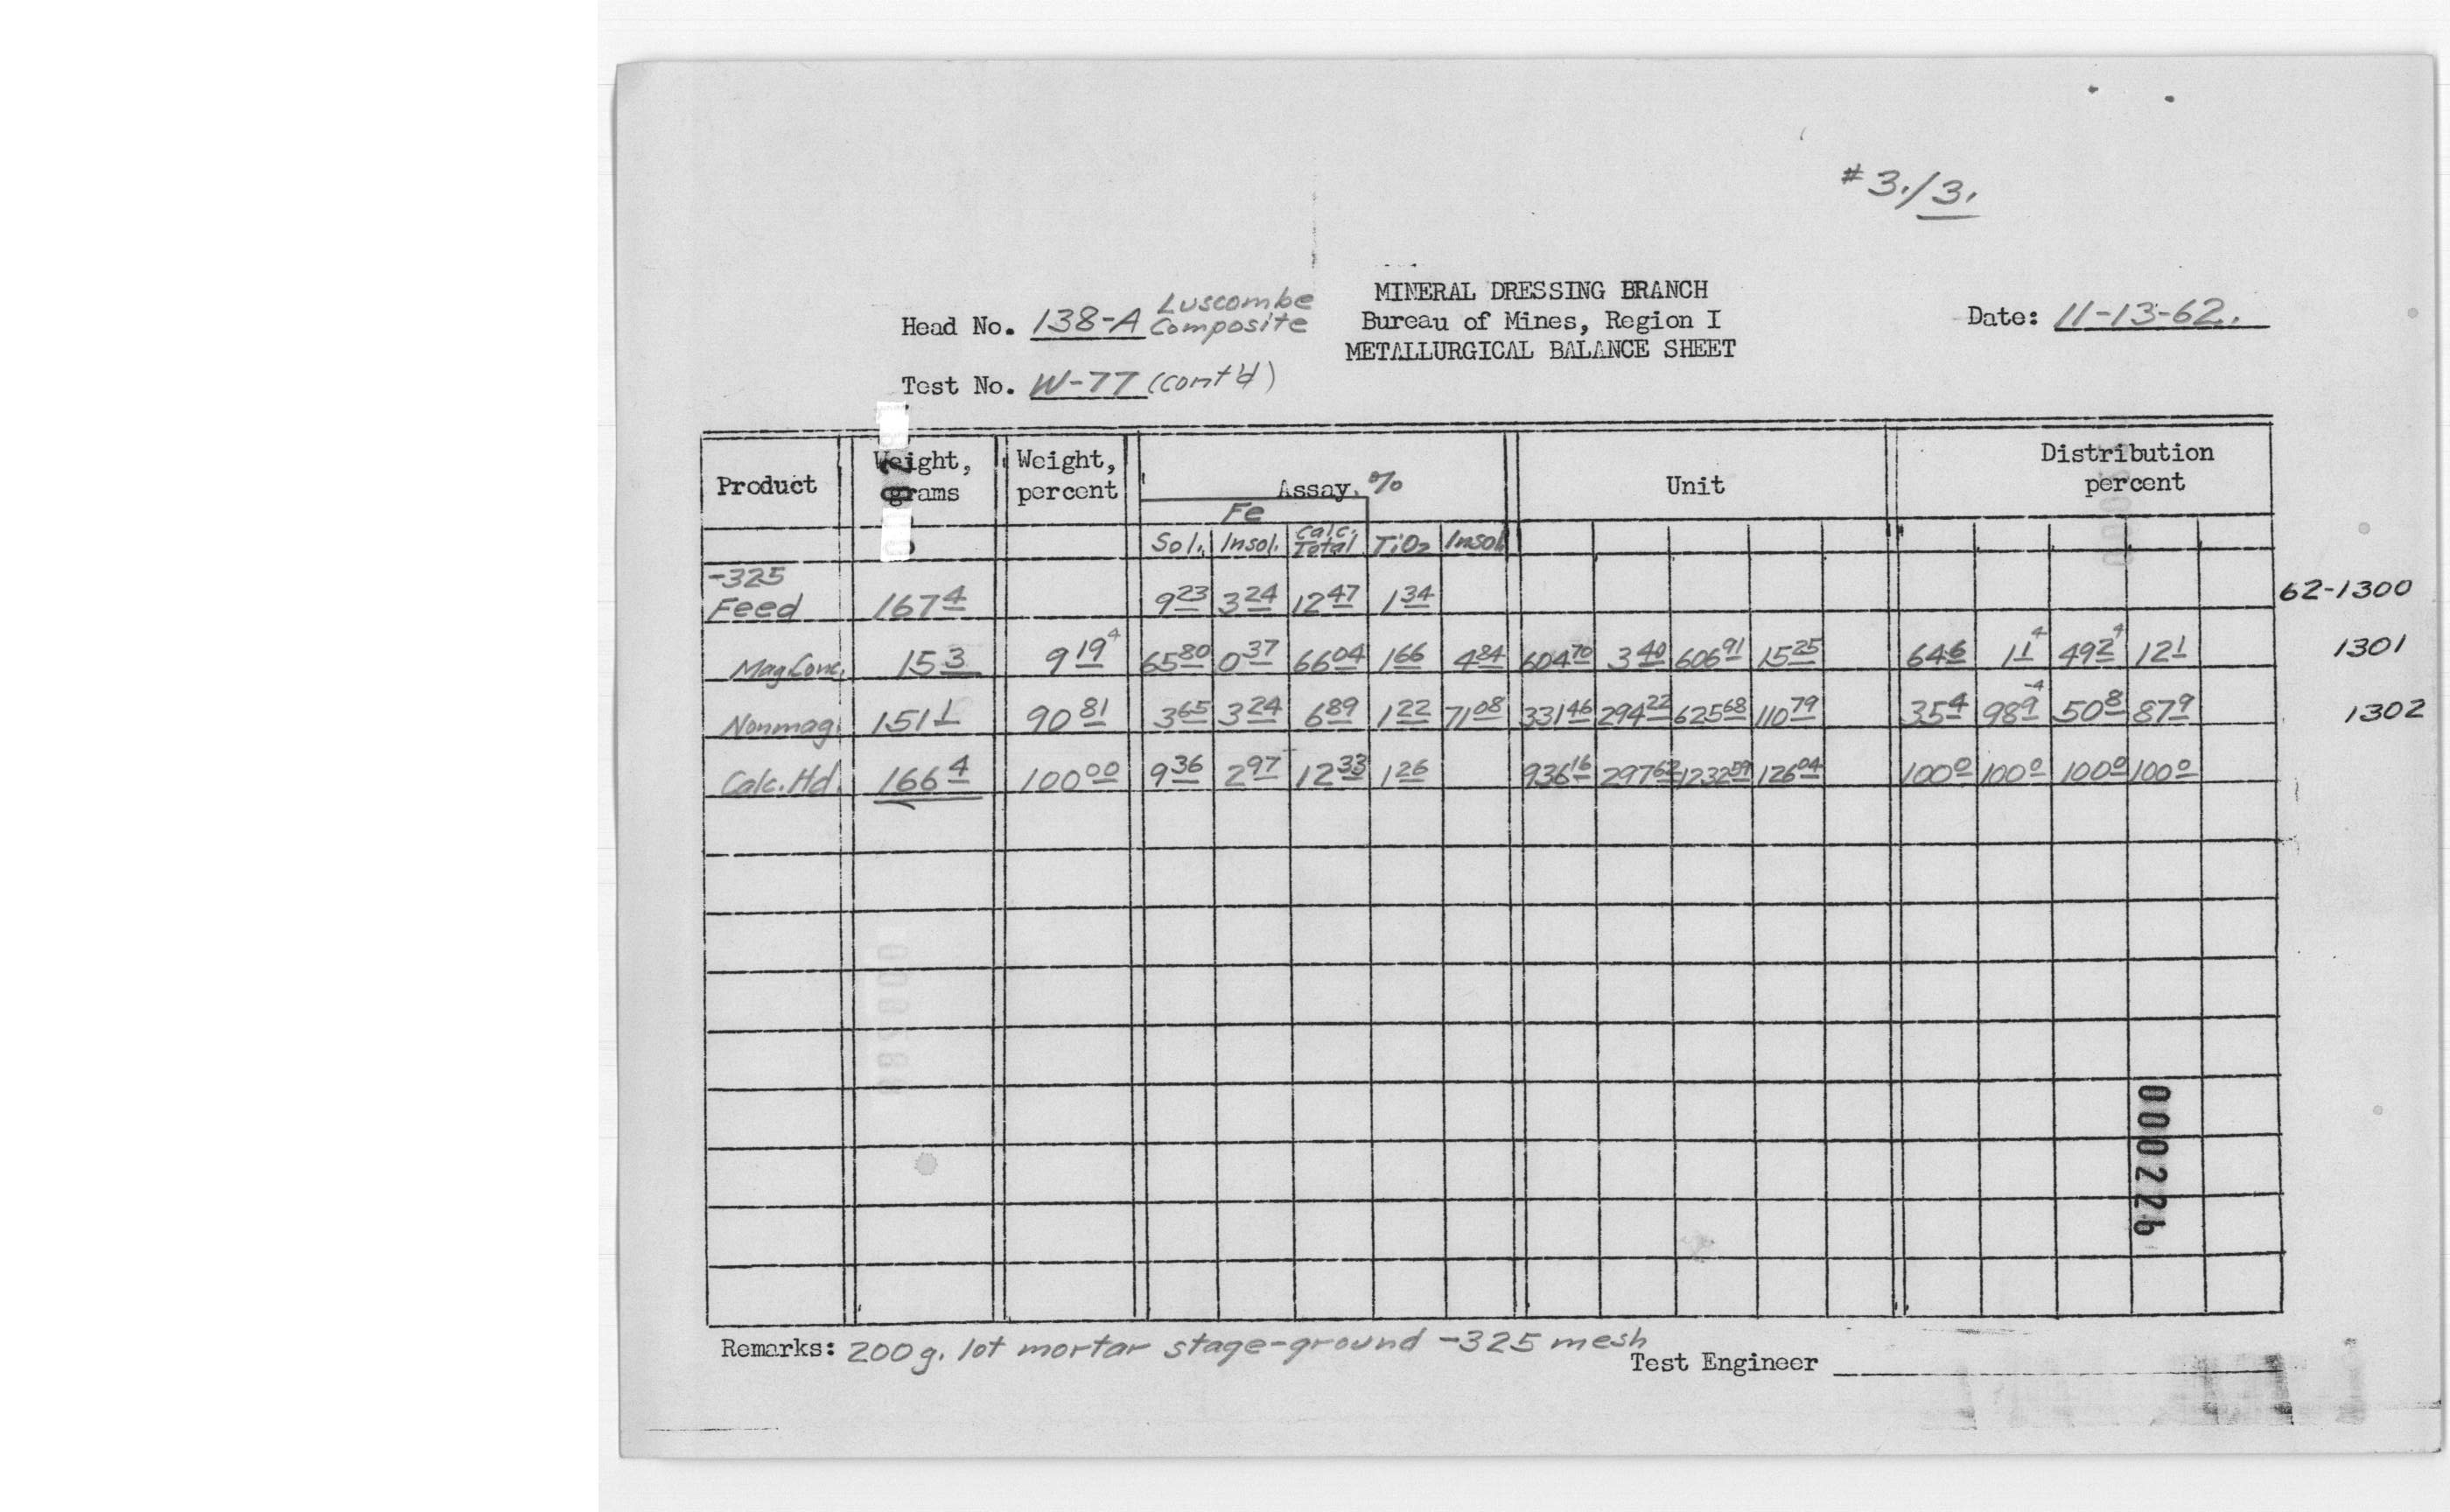 #3./3.
MINERAL DRESSING BRANCH
Bureau of Mines, Region I
METALLURGICAL BALANCE SHEET
Head No. 138-A Luscombe Composite
Date: 11-13-62.
Test No. W-77 (cont'd)
Product Weight, grams Weight, percent Assay, % Unit Distribution percent
Fe
Sol. Insol. Calc. Total TiO2 Insol.
-325 Feed 167 4 9 23 3 24 12 47 1 34 62-1300
Mag Conc. 15 3 9 19 4 65 80 0 37 66 04 1 66 4 84 604 70 3 40 606 91 15 25 64 6 1 1 4 49 2 4 12 1 1301
Nonmag. 151 1 90 81 3 65 3 24 6 89 1 22 71 08 331 46 294 22 625 68 110 79 35 4 98 9 -4 50 8 87 9 1302
Calc. Hd. 166 4 100 00 9 36 2 97 12 33 1 26 936 16 297 62 1232 59 126 04 100 0 100 0 100 0 100 0
000226
Remarks: 200g. lot mortar stage-ground -325 mesh
Test Engineer